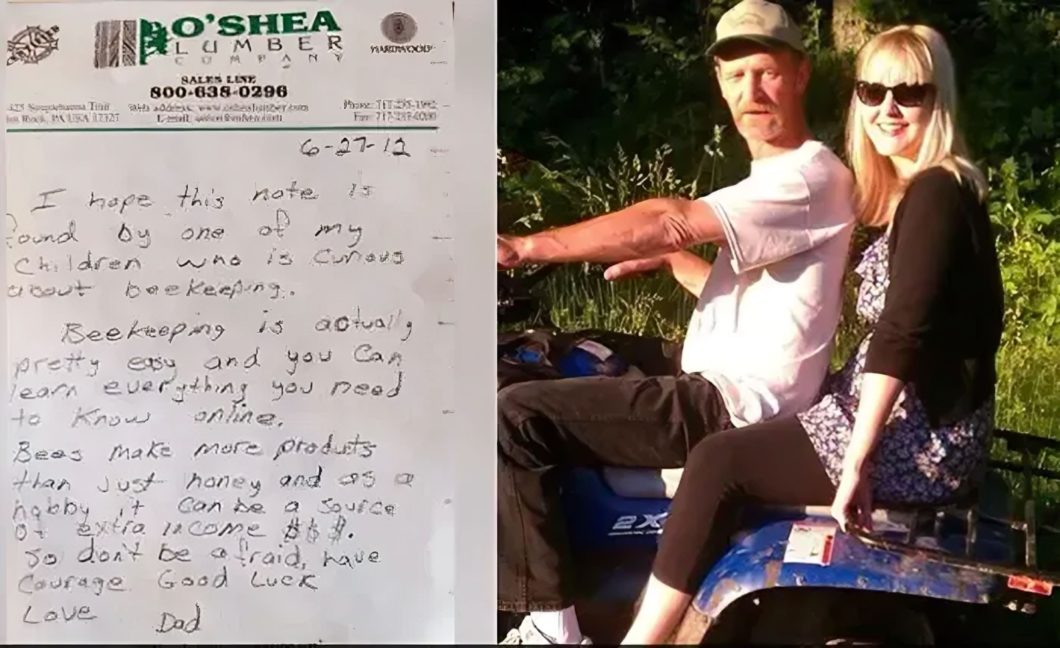 O'SHEA
LUMBER
COMPANY
HARDWOOD
SALES LINE
800-638-0296
Susquehanna Trail
Rock, PA USA 17327
Web address: www.oshealumber.com
E-mail:
Phone:
Fax:
6-27-12
I hope this note is
found by one of my
Children who is Curious
about beekeeping.
Beekeeping is actually
pretty easy and you Can
learn everything you need
to Know online.
Bees make more products
than just honey and as a
hobby it can be a source
of extra income $$$.
So don't be afraid, have
Courage Good Luck
Love Dad
2X